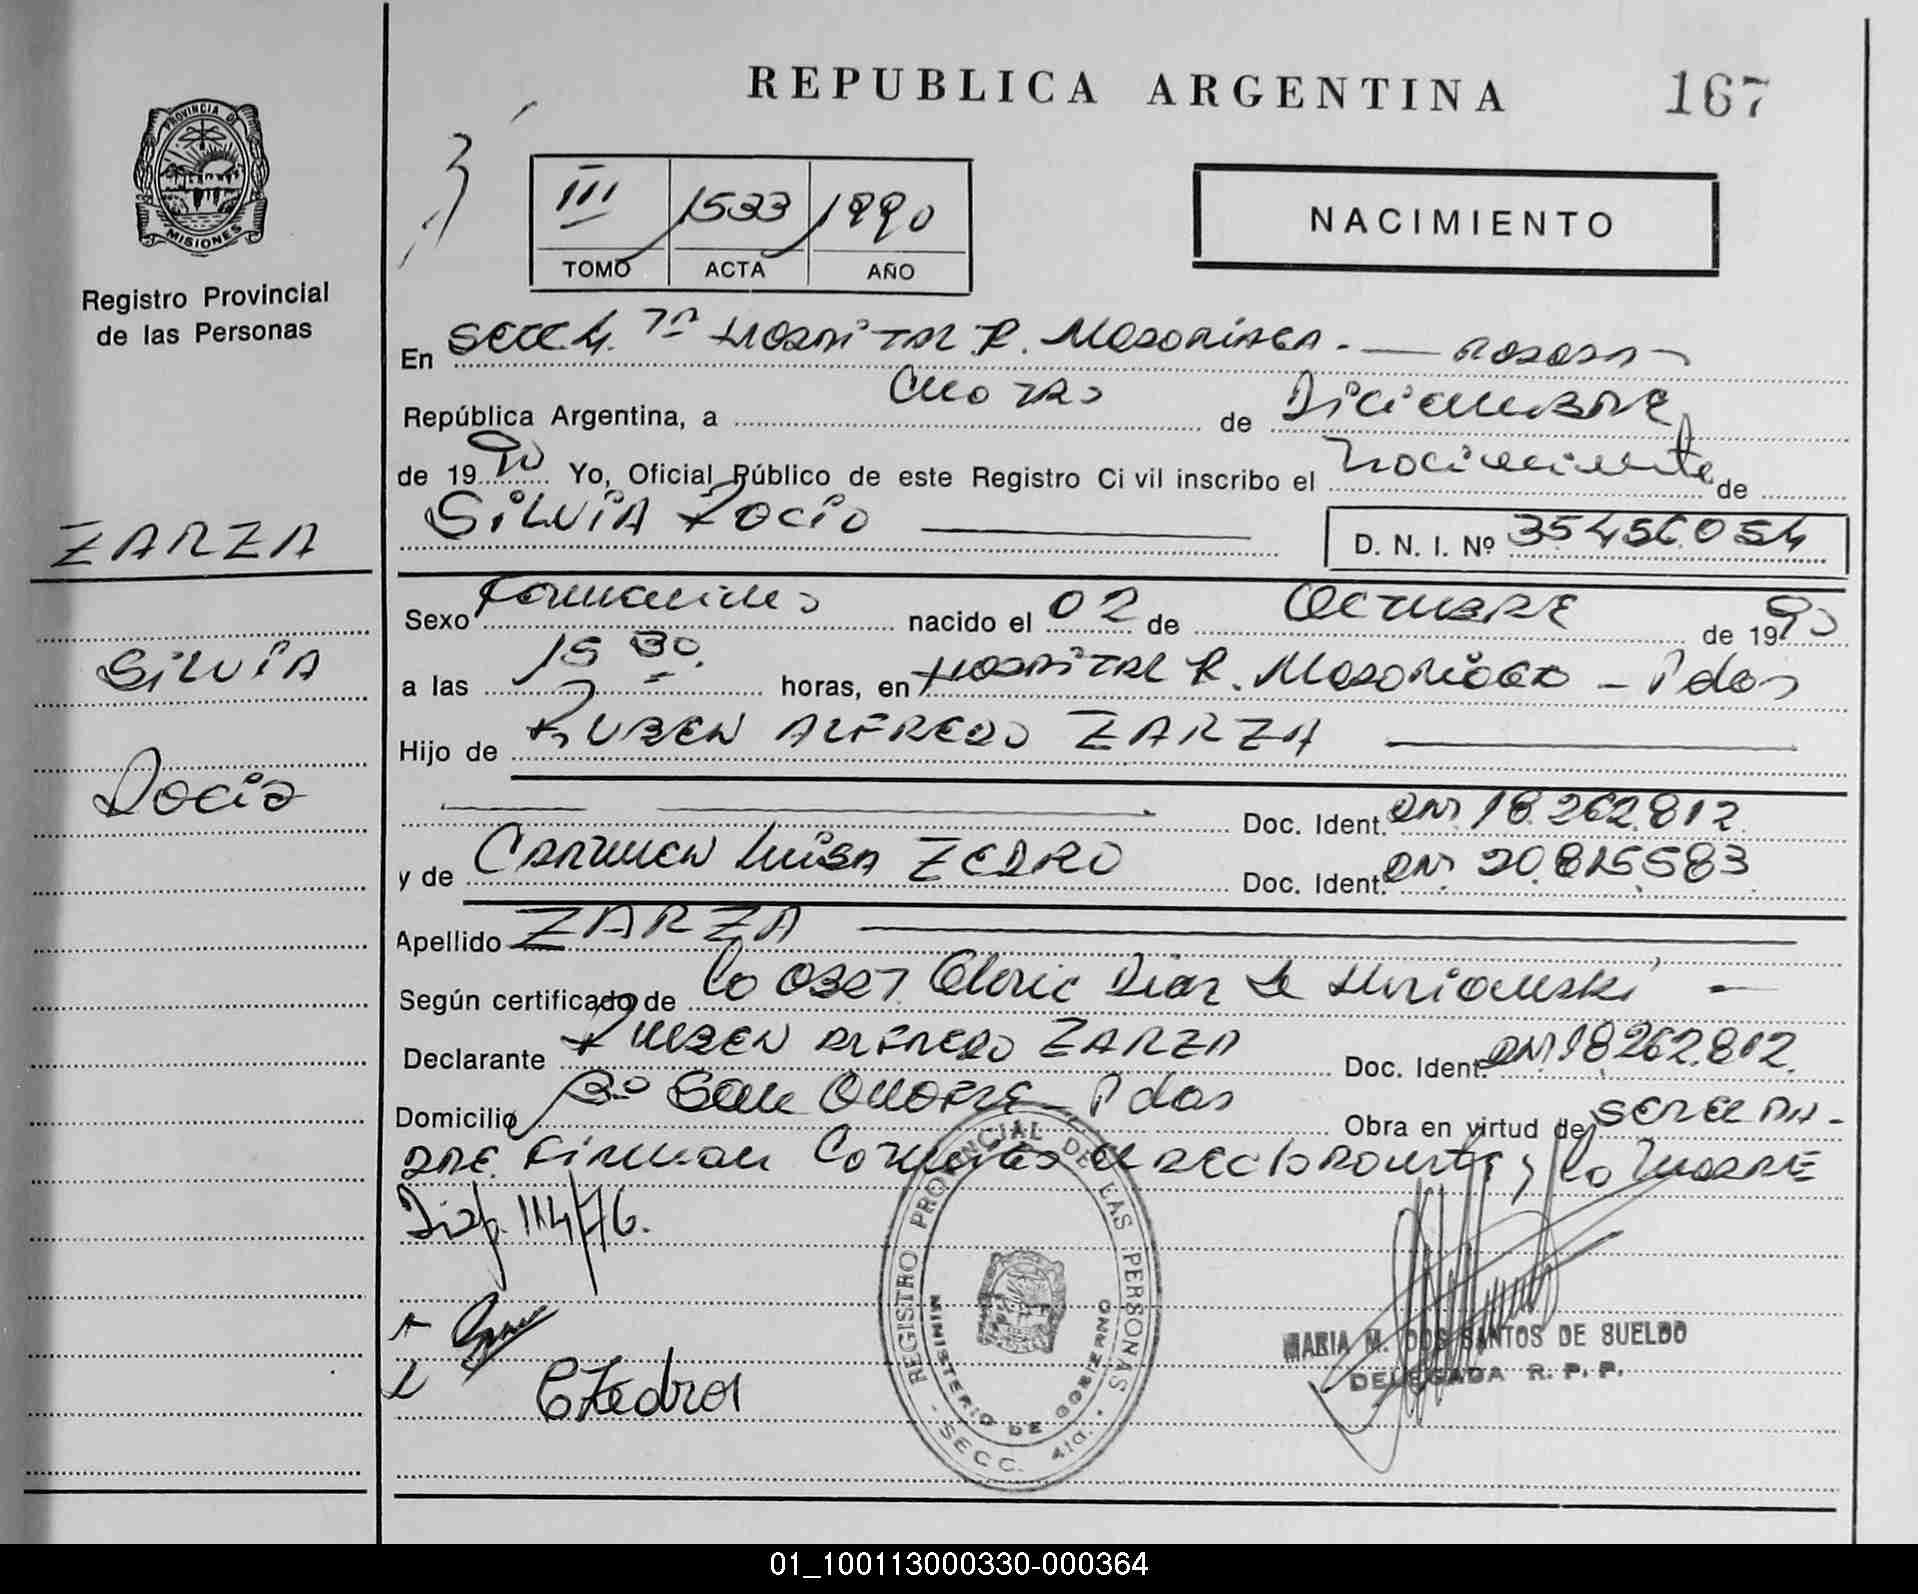 REPUBLICA ARGENTINA
167
PROVINCIA DE
MISIONES
Registro Provincial
de las Personas
III 1533 1990
TOMO ACTA AÑO
NACIMIENTO
En Secc. 4 Hospital R. Madariaga. — Posadas
República Argentina, a Cuatro de Diciembre
de 1990 Yo, Oficial Público de este Registro Ci vil inscribo el Nacimiento de
Silvia Rocio
D. N. I. Nº 35456054
ZARZA
Silvia
Rocio
Sexo Femenino nacido el 02 de Octubre de 1990
a las 15 30 horas, en Hospital R. Madariaga - Pdas
Hijo de Ruben Alfredo ZARZA
Doc. Ident. DNI 18.262.812
y de Carmen Luisa ZEDRO Doc. Ident. DNI 20.815.583
Apellido ZARZA
Según certificado de la Obst. Diaz de
Declarante Ruben Alfredo ZARZA Doc. Ident. DNI 18.262.812.
Domicilio Bº San Onofre - Pdas Obra en virtud de Ser el Pa-
dre Firman Conmigo el declarante y la Madre
Disp. 114/76.
CZedro
REGISTRO PROVINCIAL DE LAS PERSONAS
MINISTERIO DE GOBIERNO
- SECC. 4ta. -
MARIA M. DOS SANTOS DE SUELDO
DELEGADA R. P. P.
01_100113000330-000364